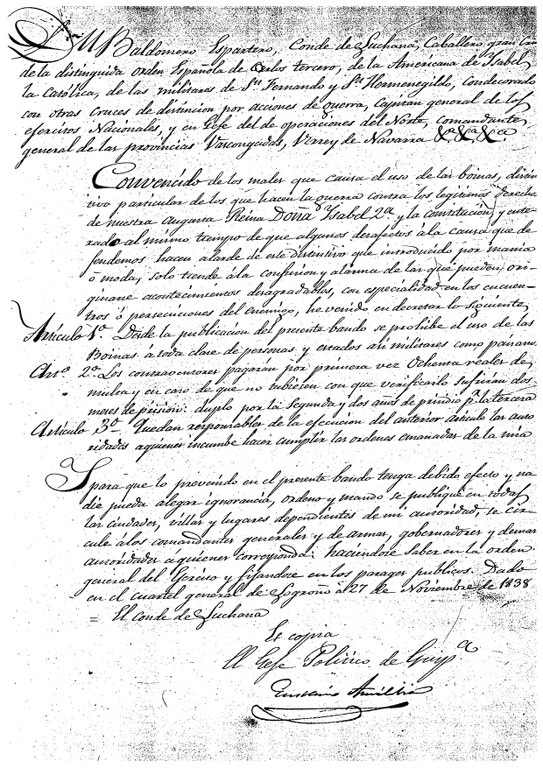 Dn Baldomero Espartero, Conde de Luchana, Caballero gran Cruz
de la distinguida orden Española de Carlos tercero, de la Americana de Isabel
la Católica, de las militares de Sn Fernando y Sn Hermenegildo, condecorado
con otras cruces de distincion por acciones de guerra, Capitan general de los
ejercitos Nacionales, y en Gefe del de operaciones del Norte, comandante
general de las provincias Vascongadas, Virrey de Navarra &a &a &a
Convencido de los males que causa el uso de las boinas, distin
tivo particular de los que hacen la guerra contra los legitimos derechos
de nuestra augusta Reina Doña Ysabel 2a y la constitucion, y ente
rado al mismo tiempo de que algunos desafectos à la causa que de
fendemos hacen alarde de este distintivo que introducido por mania
ó moda, solo tiende à la confusion y alarma de las que pueden ori
ginarse acontecimientos desagradables, con especialidad en los encuen
tros ó persecuciones del enemigo, he venido en decretar lo siguiente
Artículo 1o. Desde la publicacion del presente bando se prohibe el uso de las
Boinas à toda clase de personas y estados asi militares como paisanos.
Arto 2o. Los contraventores pagarán por primera vez Ochenta reales de
multa y en caso de que no tubiesen con que verificarlo sufriran dos
meses de prision: duplo por la segunda y dos años de presidio pr. la tercera
Artículo 3o. Quedan responsables de la ejecucion del anterior articulo las auto
ridades aquienes incumbe hacer cumplir las ordenes emanadas de la mia
Y para que lo prevenido en el presente bando tenga debido efecto y na
die pueda alegar ignorancia, ordeno y mando se publique en todas
las ciudades, villas y lugares dependientes de mi autoridad, se cir
cule à los comandantes generales y de armas, gobernadores y demas
autoridades à quienes corresponda: haciendose saber en la orden
general del Egercito y fijandose en los parages publicos. Dado
en el cuartel general de Logroño à 27 de Noviembre de 1838
= El conde de Luchana
Es copia
El Gefe Politico de Guipa
Eustasio Amilibia